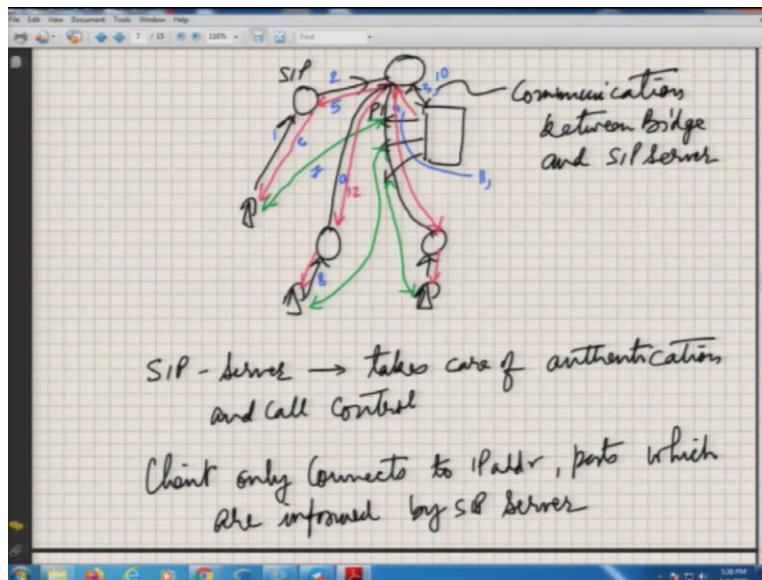 File Edit View Document Tools Window Help
7 / 15
118%
Find
SIP
2
10
5
3,
P1
1
6
7
9
12
11,
8
Communication
between Bridge
and SIP Server
SIP - Server → takes care of authentication
and call control
Client only Connects to IP addr, ports which
are informed by SIP Server
5:36 PM